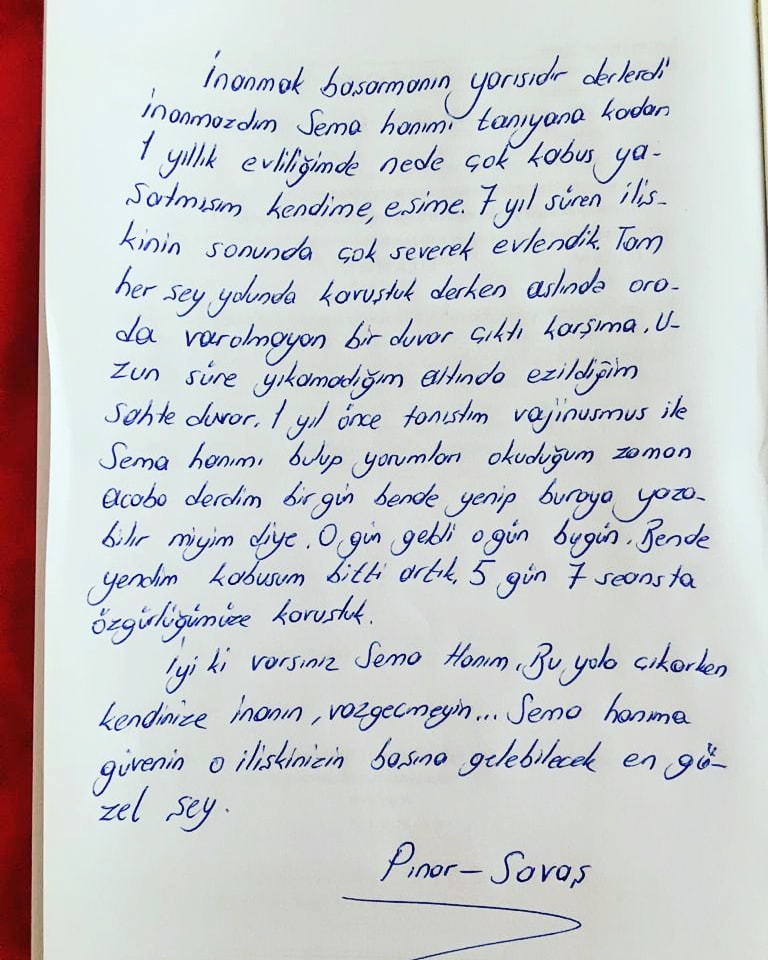 İnanmak başarmanın yarısıdır derlerdi
inanmazdım Sema hanımı tanıyana kadar
1 yıllık evliliğimde nede çok kabus ya-
şatmışım kendime, eşime. 7 yıl süren iliş-
kinin sonunda çok severek evlendik. Tam
her şey yolunda kavuştuk derken aslında ora-
da varolmayan bir duvar çıktı karşıma. U-
zun süre yıkamadığım altında ezildiğim
sahte duvar. 1 yıl önce tanıştım vajinusmus ile
Sema hanımı bulup yorumları okuduğum zaman
acaba derdim bir gün bende yenip buraya yaza-
bilir miyim diye. O gün geldi o gün bugün. Bende
yendim kabusum bitti artık. 5 gün 7 seansta
özgürlüğümüze kavuştuk.
İyi ki varsınız Sema Hanım. Bu yola çıkarken
kendinize inanın, vazgeçmeyin... Sema hanıma
güvenin o ilişkinizin başına gelebilecek en gü-
zel şey.
Pınar - Savaş